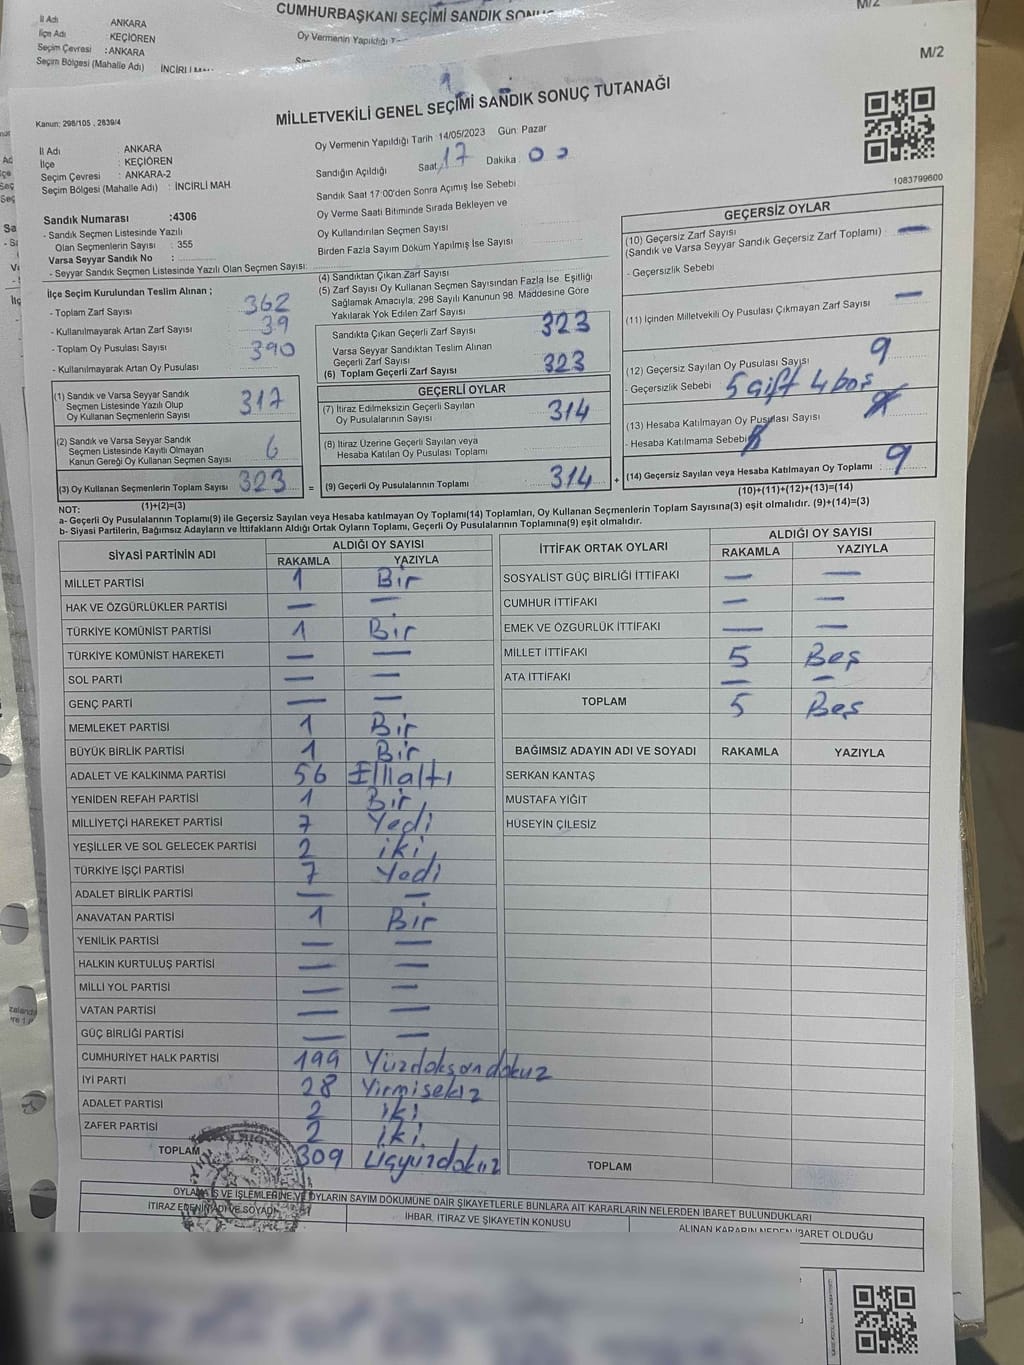 İl Adı
ANKARA
İlçe Adı
: KEÇİÖREN
Seçim Çevresi
: ANKARA
Seçim Bölgesi (Mahalle Adı)
CUMHURBAŞKANI SEÇİMİ SANDIK
Oy Vermenin Yapıldığı
M/2
M/2
MİLLETVEKİLİ GENEL SEÇİMİ SANDIK SONUÇ TUTANAĞI
Kanun: 298/105 , 2839/4
İl Adı : ANKARA
İlçe : KEÇİÖREN
Seçim Çevresi : ANKARA-2
Seçim Bölgesi (Mahalle Adı) : İNCİRLİ MAH
Oy Vermenin Yapıldığı Tarih 14/05/2023 Gün: Pazar
Sandığın Açıldığı Saat 17 Dakika : 00
Sandık Saat 17:00'den Sonra Açımış İse Sebebi
Oy Verme Saati Bitiminde Sırada Bekleyen ve
Oy Kullandırılan Seçmen Sayısı
Birden Fazla Sayım Döküm Yapılmış İse Sayısı
1083799600
Sandık Numarası :4306
- Sandık Seçmen Listesinde Yazılı
Olan Seçmenlerin Sayısı : 355
Varsa Seyyar Sandık No :
- Seyyar Sandık Seçmen Listesinde Yazılı Olan Seçmen Sayısı:
İlçe Seçim Kurulundan Teslim Alınan ;
- Toplam Zarf Sayısı 362
- Kullanılmayarak Artan Zarf Sayısı 39
- Toplam Oy Pusulası Sayısı 390
- Kullanılmayarak Artan Oy Pusulası
(1) Sandık ve Varsa Seyyar Sandık
Seçmen Listesinde Yazılı Olup
Oy Kullanan Seçmenlerin Sayısı 317
(2) Sandık ve Varsa Seyyar Sandık
Seçmen Listesinde Kayıtlı Olmayan
Kanun Gereği Oy Kullanan Seçmen Sayısı 6
(3) Oy Kullanan Seçmenlerin Toplam Sayısı 323
=
(4) Sandıktan Çıkan Zarf Sayısı
(5) Zarf Sayısı Oy Kullanan Seçmen Sayısından Fazla İse, Eşitliği
Sağlamak Amacıyla, 298 Sayılı Kanunun 98. Maddesine Göre
Yakılarak Yok Edilen Zarf Sayısı
Sandıkta Çıkan Geçerli Zarf Sayısı 323
Varsa Seyyar Sandıktan Teslim Alınan
Geçerli Zarf Sayısı
(6) Toplam Geçerli Zarf Sayısı 323
GEÇERLİ OYLAR
(7) İtiraz Edilmeksizin Geçerli Sayılan
Oy Pusulalarının Sayısı 314
(8) İtiraz Üzerine Geçerli Sayılan veya
Hesaba Katılan Oy Pusulası Toplamı
(9) Geçerli Oy Pusulalarının Toplamı 314
+
GEÇERSİZ OYLAR
(10) Geçersiz Zarf Sayısı
(Sandık ve Varsa Seyyar Sandık Geçersiz Zarf Toplamı) : —
- Geçersizlik Sebebi
(11) İçinden Milletvekili Oy Pusulası Çıkmayan Zarf Sayısı —
(12) Geçersiz Sayılan Oy Pusulası Sayısı 9
- Geçersizlik Sebebi 5 çift 4 boş
(13) Hesaba Katılmayan Oy Pusulası Sayısı
- Hesaba Katılmama Sebebi
(14) Geçersiz Sayılan veya Hesaba Katılmayan Oy Toplamı : 9
NOT: (1)+(2)=(3)
(10)+(11)+(12)+(13)=(14)
a- Geçerli Oy Pusulalarının Toplamı(9) ile Geçersiz Sayılan veya Hesaba katılmayan Oy Toplamı(14) Toplamları, Oy Kullanan Seçmenlerin Toplam Sayısına(3) eşit olmalıdır. (9)+(14)=(3)
b- Siyasi Partilerin, Bağımsız Adayların ve İttifakların Aldığı Ortak Oyların Toplamı, Geçerli Oy Pusulalarının Toplamına(9) eşit olmalıdır.
SİYASİ PARTİNİN ADI ALDIĞI OY SAYISI
RAKAMLA YAZIYLA
MİLLET PARTİSİ 1 Bir
HAK VE ÖZGÜRLÜKLER PARTİSİ — —
TÜRKİYE KOMÜNİST PARTİSİ 1 Bir
TÜRKİYE KOMÜNİST HAREKETİ — —
SOL PARTİ — —
GENÇ PARTİ — —
MEMLEKET PARTİSİ 1 Bir
BÜYÜK BİRLİK PARTİSİ 1 Bir
ADALET VE KALKINMA PARTİSİ 56 Ellialtı
YENİDEN REFAH PARTİSİ 1 Bir
MİLLİYETÇİ HAREKET PARTİSİ 7 Yedi
YEŞİLLER VE SOL GELECEK PARTİSİ 2 iki
TÜRKİYE İŞÇİ PARTİSİ 7 Yedi
ADALET BİRLİK PARTİSİ — —
ANAVATAN PARTİSİ 1 Bir
YENİLİK PARTİSİ — —
HALKIN KURTULUŞ PARTİSİ — —
MİLLİ YOL PARTİSİ — —
VATAN PARTİSİ — —
GÜÇ BİRLİĞİ PARTİSİ — —
CUMHURİYET HALK PARTİSİ 199 Yüzdoksandokuz
İYİ PARTİ 28 Yirmisekiz
ADALET PARTİSİ 2 iki
ZAFER PARTİSİ 2 iki
TOPLAM 309 Üçyüzdokuz
İTTİFAK ORTAK OYLARI ALDIĞI OY SAYISI
RAKAMLA YAZIYLA
SOSYALİST GÜÇ BİRLİĞİ İTTİFAKI — —
CUMHUR İTTİFAKI — —
EMEK VE ÖZGÜRLÜK İTTİFAKI — —
MİLLET İTTİFAKI 5 Beş
ATA İTTİFAKI — —
TOPLAM 5 Beş
BAĞIMSIZ ADAYIN ADI VE SOYADI RAKAMLA YAZIYLA
SERKAN KANTAŞ
MUSTAFA YİĞİT
HÜSEYİN ÇİLESİZ
TOPLAM
OYLAMA İŞ VE İŞLEMLERİNE VE OYLARIN SAYIM DÖKÜMÜNE DAİR ŞİKAYETLERLE BUNLARA AİT KARARLARIN NELERDEN İBARET BULUNDUKLARI
İTİRAZ EDENİN ADI VE SOYADI
İHBAR, İTİRAZ VE ŞİKAYETİN KONUSU
ALINAN KARARIN NEDEN İBARET OLDUĞU